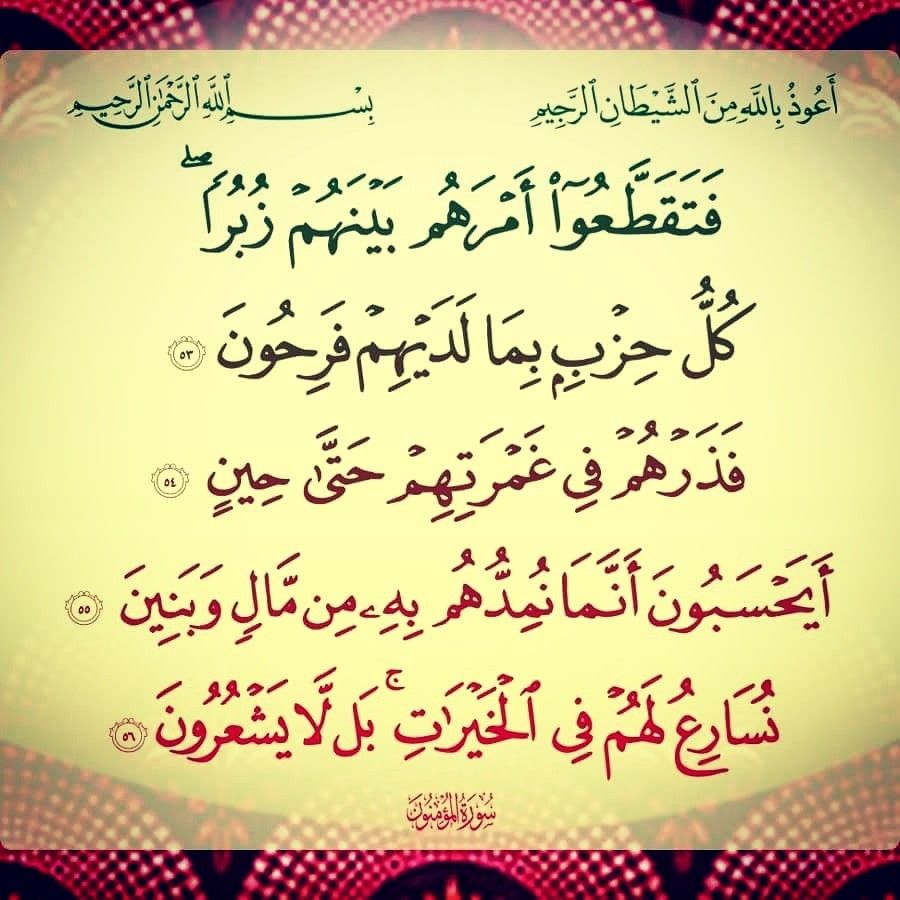 أَعُوذُ بِاللَّهِ مِنَ ٱلشَّيْطَانِ ٱلرَّجِيمِ
بِسْمِ ٱللَّهِ ٱلرَّحْمَٰنِ ٱلرَّحِيمِ
فَتَقَطَّعُوٓا۟ أَمْرَهُم بَيْنَهُمْ زُبُرًا ۖ
كُلُّ حِزْبٍۭ بِمَا لَدَيْهِمْ فَرِحُونَ ٥٣
فَذَرْهُمْ فِى غَمْرَتِهِمْ حَتَّىٰ حِينٍ ٥٤
أَيَحْسَبُونَ أَنَّمَا نُمِدُّهُم بِهِۦ مِن مَّالٍ وَبَنِينَ ٥٥
نُسَارِعُ لَهُمْ فِى ٱلْخَيْرَٰتِ ۚ بَل لَّا يَشْعُرُونَ ٥٦
سُورَةُ المُؤْمِنُونَ